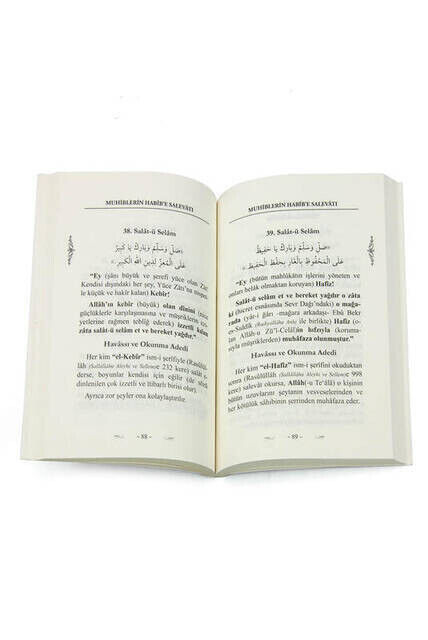 MUHİBLERİN HABÎB'E SALEVÂTI
38. Salât-ü Selâm
«صَلِّ وَسَلِّمْ وَبَارِكْ يَا كَبِيرُ
عَلَى الْمُعَزِّ لِدِينِ اللّٰهِ الْكَبِيرِ»
"Ey (şânı büyük ve şerefi yüce olan Zât!
Kendisi dışındaki her şey, Yüce Zâtı'na nispet-
le küçük ve hakîr kalan) Kebîr!
Allâh'ın kebîr (büyük) olan dînini (nice
güçlüklerle karşılaşmasına ve müşriklerin eziy-
yetlerine rağmen tebliğ ederek) izzetli kılan
zâta salât-ü selâm et ve bereket yağdır."
Havâssı ve Okunma Adedi
Her kim "el-Kebîr" ism-i şerîfiyle (Rasûlül-
lâh (Sallâllâhu Aleyhi ve Sellem)e 232 kere) salevât oku-
sa, boyunlar kendisi için eğilir (de sözü
dinlenilen çok izzetli ve îtibarlı birisi olur).
Ayrıca zor şeyler ona kolaylaştırılır.
- 88 -
MUHİBLERİN HABÎB'E SALEVÂTI
39. Salât-ü Selâm
«صَلِّ وَسَلِّمْ وَبَارِكْ يَا حَفِيظُ
عَلَى الْمَحْفُوظِ بِالْغَارِ بِحِفْظِ الْحَفِيظِ»
"Ey (bütün mahlûkâtın işlerini yöneten ve
onları belalardan olmaktan koruyan) Hafîz!
Salât-ü selâm et ve bereket yağdır o zâta
ki (hicret esnâsında Sevr Dağı'ndaki) o mağa-
rada (yâr-i gârı -mağara arkadaşı- Ebû Bekr
es-Sıddîk (Radıyallâhu Anh) ile birlikte) Hafîz (koruma-
sı olan Allâh-u Zü'l-Celâl)in hıfzıyla (düşma-
nı müşriklerden) muhâfaza olunmuştur."
Havâssı ve Okunma Adedi
Her kim "el-Hafîz" ism-i şerîfini okuduktan
sonra (Rasûlüllâh (Sallâllâhu Aleyhi ve Sellem)e 998
kere) salevât okursa, Allâh(-u Te'âlâ) o kişinin
bütün uzuvlarını şeytanın vesveselerinden ve
her kötülük sâhibinin şerrinden muhâfaza eder.
- 89 -